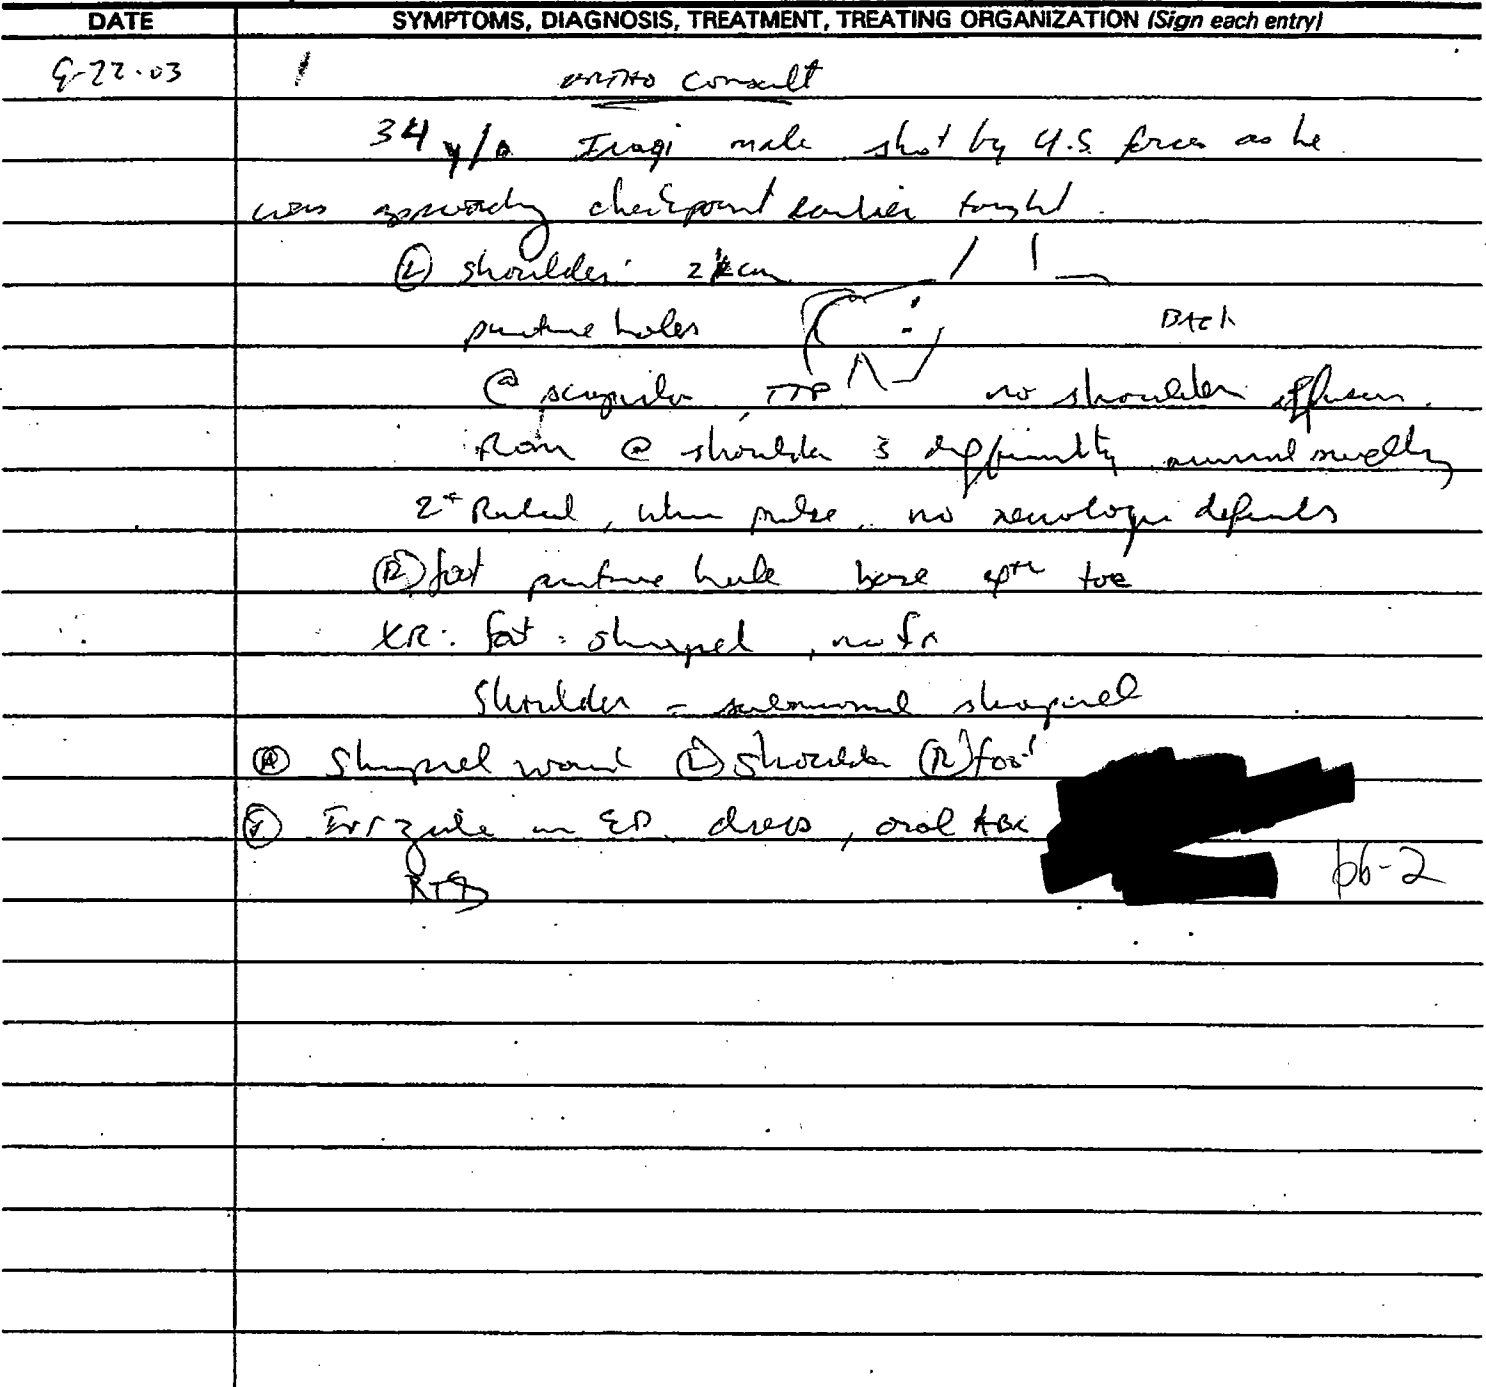 DATE SYMPTOMS, DIAGNOSIS, TREATMENT, TREATING ORGANIZATION (Sign each entry)
9-22-03 ORTHO Consult
34 y/o Iraqi male shot by U.S. forces as he
was approaching checkpoint earlier tonight.
(L) shoulder: 2 cm
puncture holes BACK
@ scapula TTP no shoulder effusion.
Rom @ shoulder s difficulty, swelling
2+ Radial, ulnar pulse, no neurologic deficits
(R) foot puncture hole base toe
XR: foot: shrapnel, no fx
Shoulder = shrapnel
(A) Shrapnel wound (L) shoulder (R) foot
Irrigate in ED, dress, oral ABX
b6-2